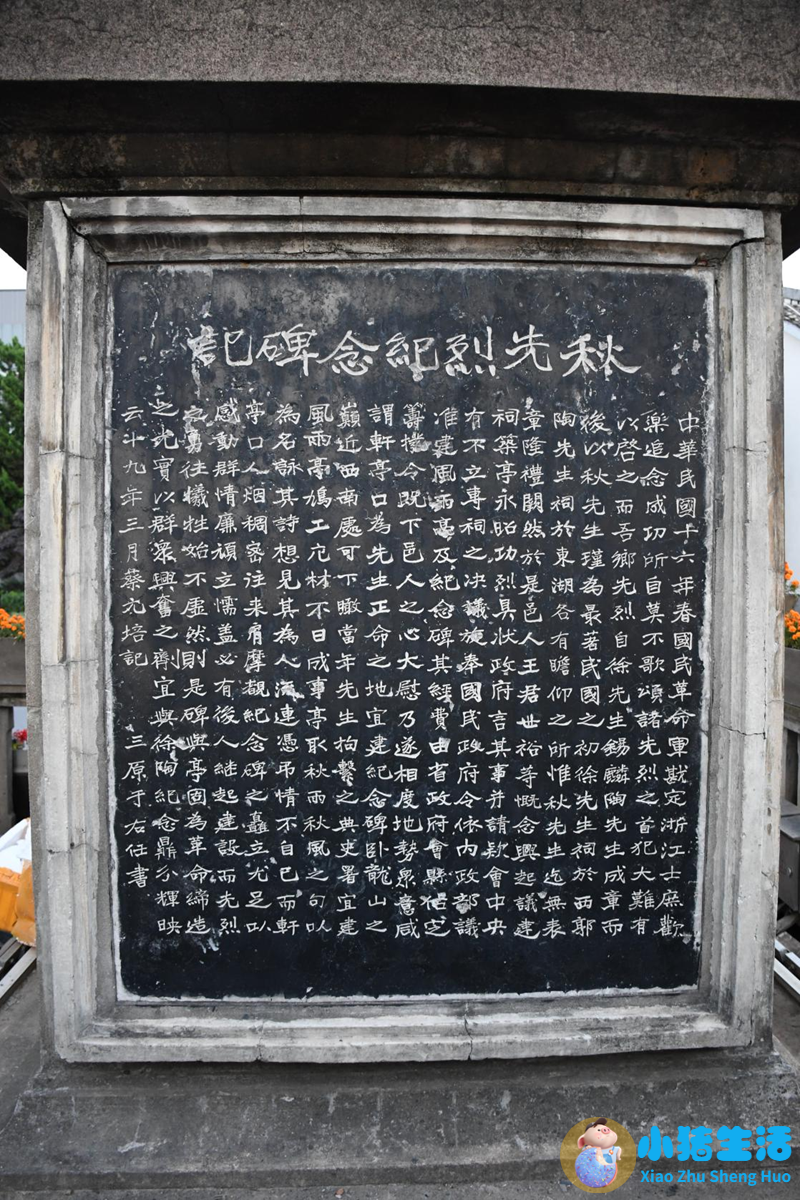 秋先烈紀念碑記
中華民國十六年春國民革命軍戡定浙江士庶歡
樂追念成功所自莫不歌頌諸先烈之首犯大難有
以啓之而吾鄉先烈自徐先生錫麟陶先生成章而
後以秋先生瑾為最著民國之初徐先生祠於西郭
陶先生祠於東湖各有瞻仰之所惟秋先生迄無表
章隆禮闕然於是邑人王君世裕等慨念興起議建
祠築亭永昭功烈具狀政府言其事并請欵會中央
有不立專祠之决議旋奉國民政府令依內政部議
准建風雨亭及紀念碑其經費由省政府會縣指定
籌撥令既下邑人之心大慰乃遂相度地勢衆意咸
謂軒亭口為先生正命之地宜建紀念碑卧龍山之
巔近西南處可下瞰當年先生拘繫之典史署宜建
風雨亭鳩工庀材不日成事亭取秋雨秋風之句以
為名詠其詩想見其為人流連憑弔情不自已而軒
亭口人烟稠密往来肩摩觀紀念碑之矗立尤足以
感動群情廉頑立懦蓋必有後人继起建設而先烈
之勇往犧牲始不虛然則是碑與亭固為革命締造
之光實以群衆興奮之劑宜與徐陶紀念鼎分輝映
云十九年三月蔡元培記 三原于右任書
小猪生活
Xiao Zhu Sheng Huo